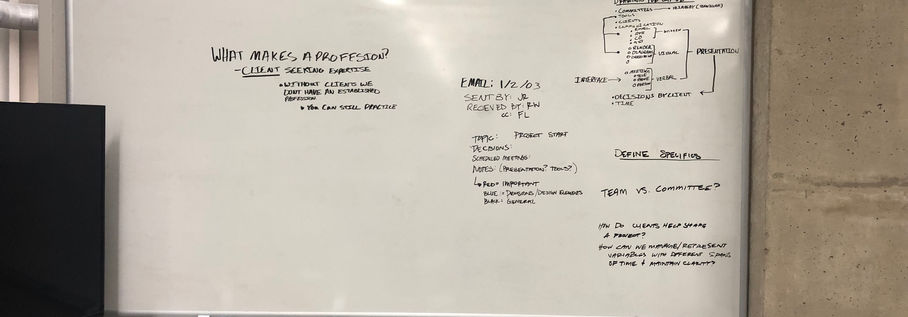 WHAT MAKES A PROFESION?
- CLIENT SEEKING EXPERTISE
• WITHOUT CLIENTS WE
DONT HAVE AN ESTABLISHED
PROFESSION
• YOU CAN STILL PRACTICE
EMAIL: 1/2/03
SENT BY: JR
RECIEVED BY: RW
CC: FL
TOPIC: PROJECT START
DECISIONS:
SCHEDULED MEETING:
NOTES: (PRESENTATION? TOOLS?)
RED = IMPORTANT
BLUE = DECISIONS/DESIGN ELEMENTS
BLACK: GENERAL
• COMMITTEES
• TOOLS
• CLIENTS
• COMMUNICATION
EMAIL
WRITTEN
VISUAL
PRESENTATION
INTERFACE
MEETING
VERBAL
• DECISIONS BY CLIENT
• TIME
DEFINE SPECIFICS
TEAM VS. COMMITTEE?
HOW DO CLIENTS HELP SHAPE
A PROJECT?
HOW CAN WE MANAGE/REPRESENT
VARIABLES WITH DIFFERENT SPANS
OF TIME + MAINTAIN CLARITY?